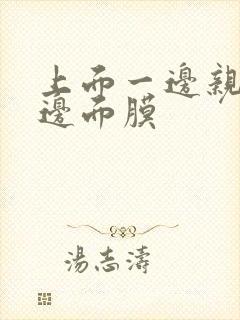 上而一邊親
邊而膜
湯志濤